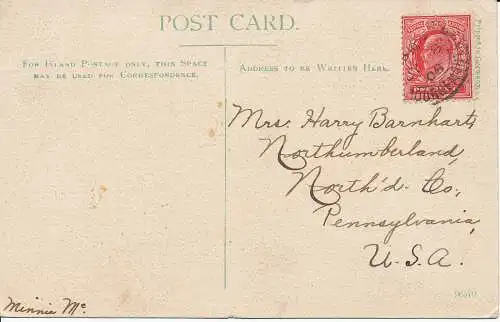 POST CARD.
FOR INLAND POSTAGE ONLY, THIS SPACE
MAY BE USED FOR CORRESPONDENCE.
ADDRESS TO BE WRITTEN HERE.
Mrs. Harry Barnhart,
Northumberland,
North'd. Co,
Pennsylvania,
U.S.A.
Minnie Mc